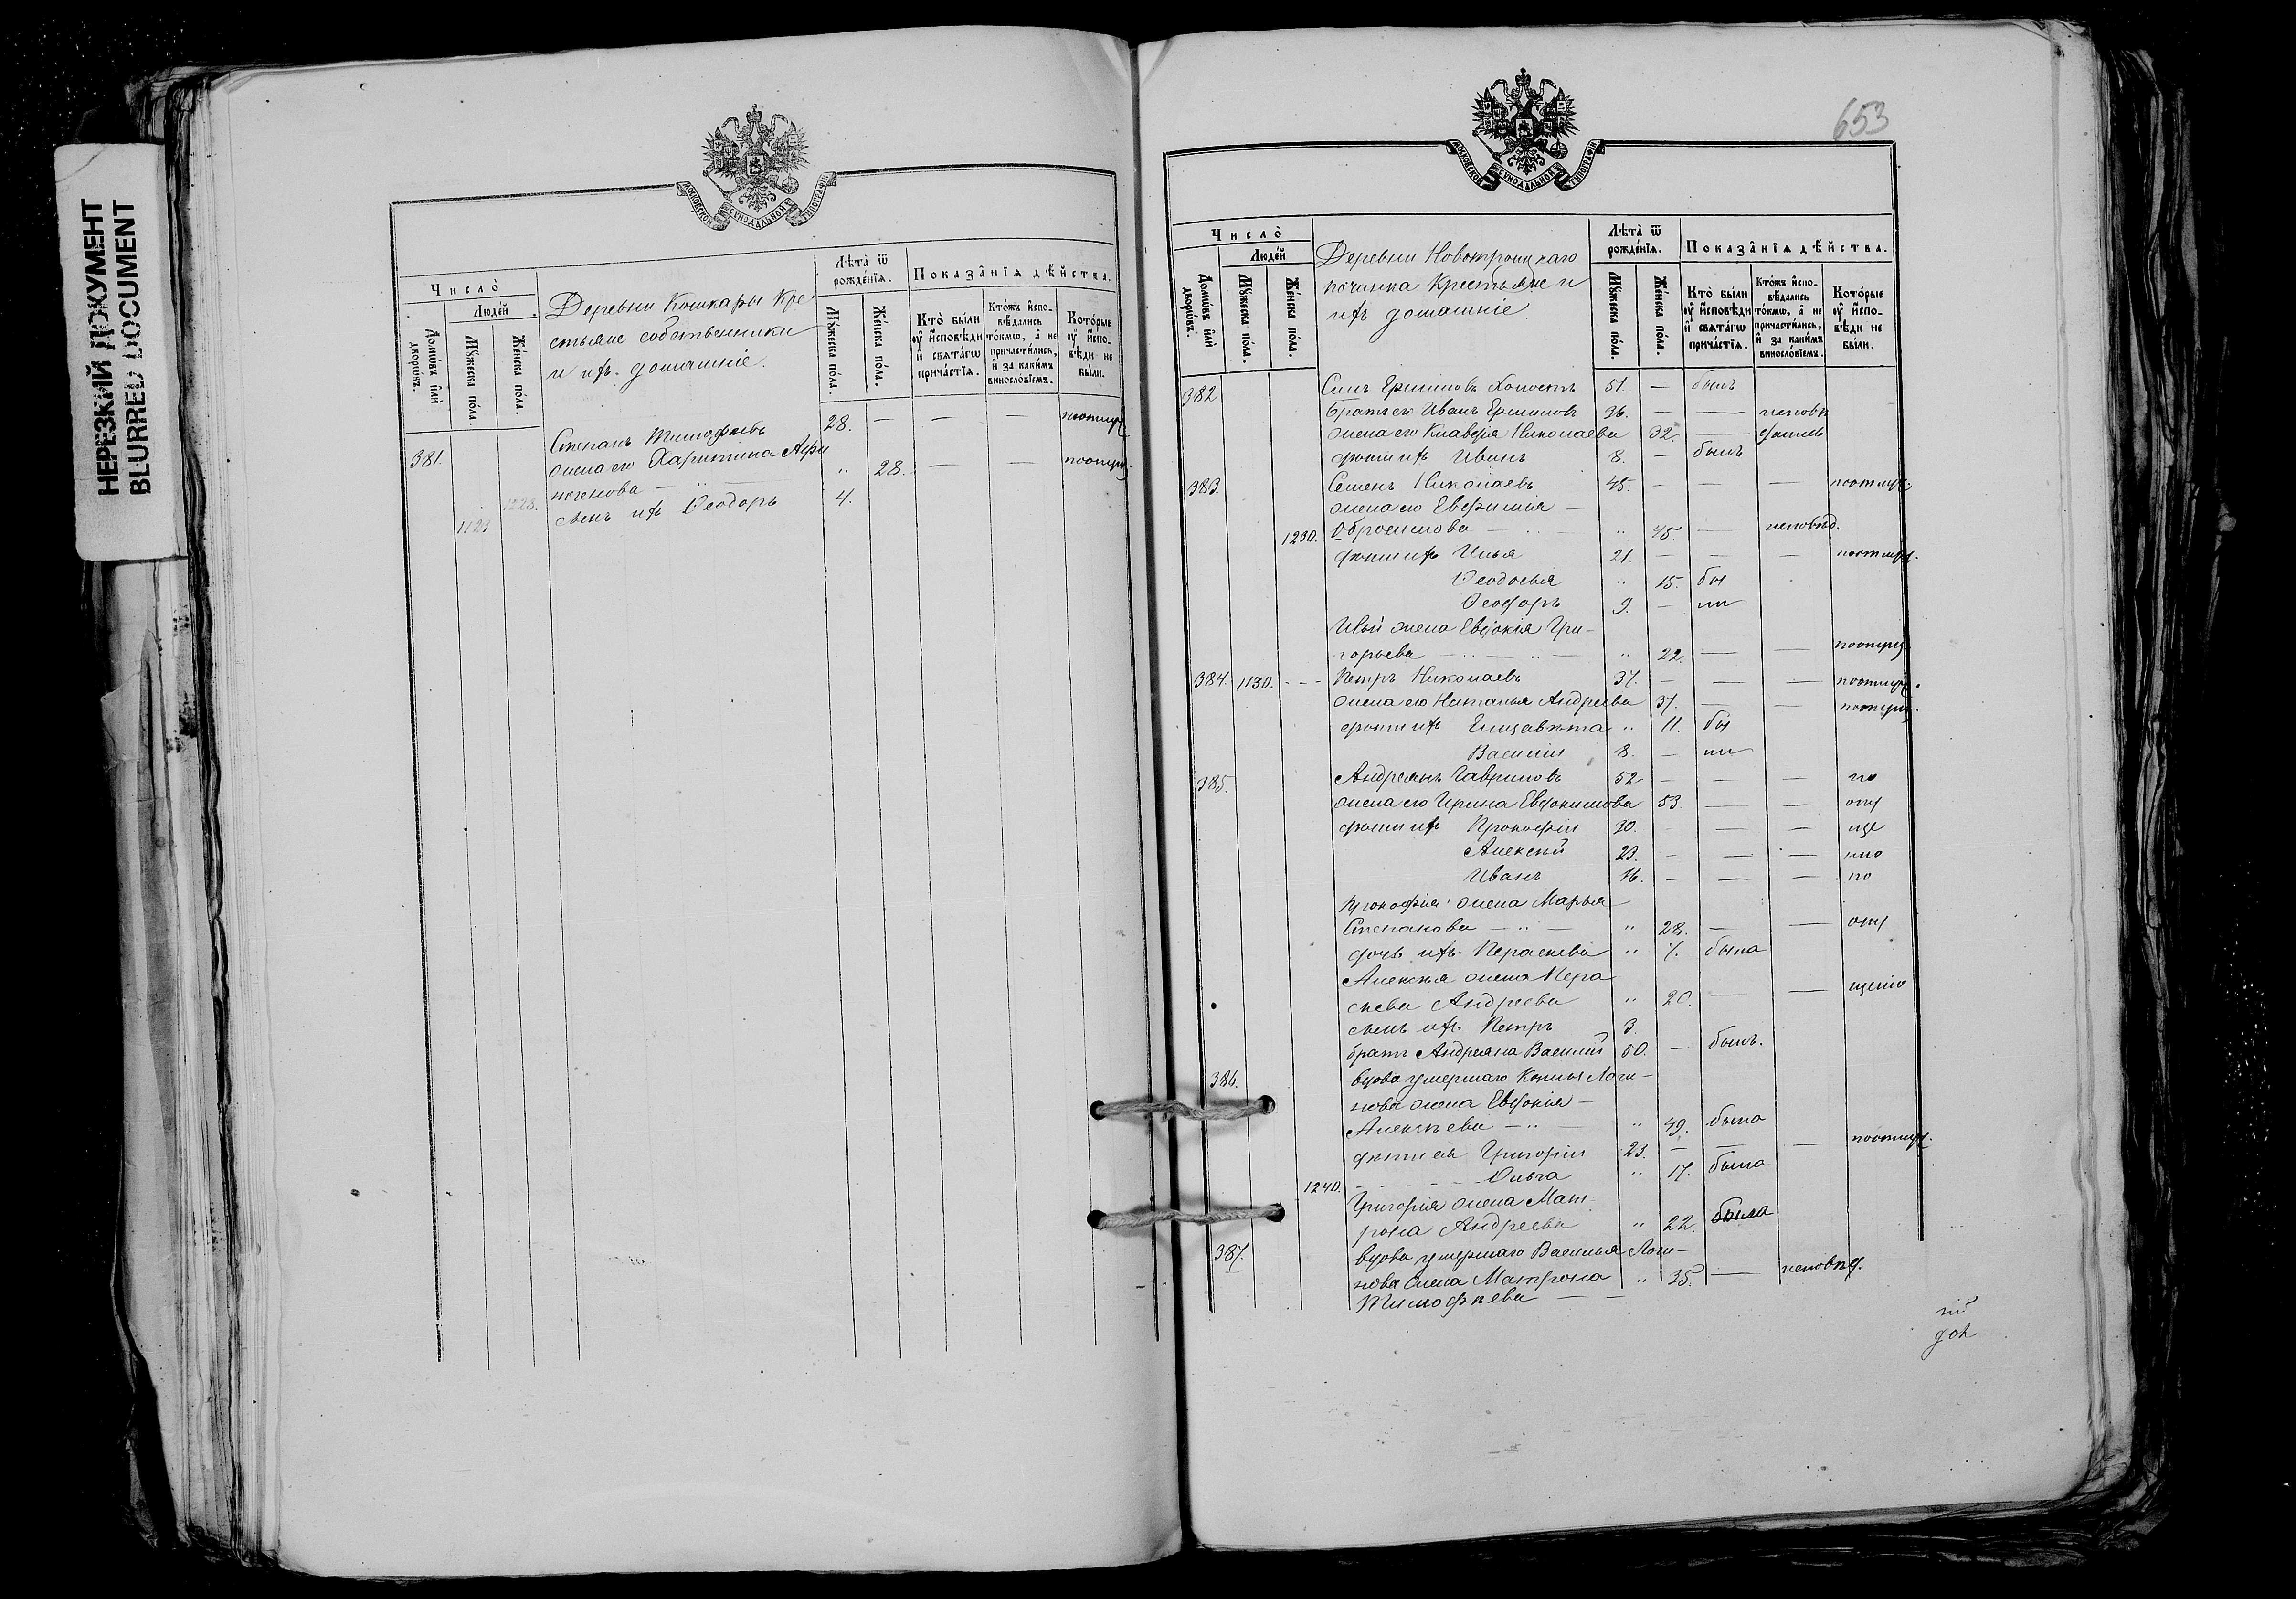 НЕРЕЗКИЙ ДОКУМЕНТ
BLURRED DOCUMENT
МОСКОВСКОЙ СѴНОДАЛЬНОЙ ТИПОГРАФІИ
Число̀
Людей
Домѡвъ или дворѡвъ.
Мꙋжеска пола.
Женска пола.
Деревни Кошкары Кре
стьяне собственники
и ихъ домашніе.
Лѣта ѿ рожденія.
Мꙋжеска пола
Женска пола.
Показанія дѣйства.
Кто были ᲂу исповѣди и свѧтагѡ причастія.
Ктожъ исповѣдались токмѡ, а не причастились, и за какимъ винословіемъ.
Которые ᲂу исповѣди не были.
381. Степанъ Тимофѣевъ 28. — — —
жена его Харитина
" 28. — —
1129 1228. сынъ ихъ Ѳеодоръ 4.
653
МОСКОВСКОЙ СѴНОДАЛЬНОЙ ТИПОГРАФІИ
Число̀
Людей
Домѡвъ или дворѡвъ.
Мꙋжеска пола.
Женска пола.
Деревни Новотроицкаго
починка крестьяне и
ихъ домашніе.
Лѣта ѿ рожденія.
Мꙋжеска пола.
Женска пола.
Показанія дѣйства.
Кто были ᲂу исповѣди и свѧтагѡ причастія.
Ктожъ исповѣдались токмѡ, а не причастились, и за какимъ винословіемъ.
Которые ᲂу исповѣди не были.
382 Ермиловъ Холостъ 51. — былъ
Братъ его Иванъ Ермиловъ 36. — — исповѣ
жена его Клавдія Николаева 32. — дались
дѣти ихъ Иванъ 8. — былъ
383. Семенъ Николаевъ 45. — — —
жена его Евфимія —
1230. Обросимова — " 45. — исповѣд.
дѣти ихъ Илья 21. — — —
Ѳеодосья " 15. бы
Ѳеодоръ 9. — ли
Ильи жена Евдокія Гри-
горьева — " 22. — —
384. 1130. Петръ Николаевъ 37. — — —
жена его Наталья Андреева 37. — —
дѣти ихъ Елизавѣта " 11. бы
Василій 8. — ли
385. Андреянъ Гавриловъ 52 — — — по
жена его Ирина Евдокимова 53. — — опу
дѣти ихъ Прокофій 30. — — — ще
Алексѣй 23. — — — нію
Иванъ 16. — — — по
Прокофія жена Марья
Степанова — " 28. — — опу
дочь ихъ Параскева " 7. была
Алексѣя жена Пара
скева Андреева " 20. — — щенію
сынъ ихъ Петръ 3.
братъ Андреяна Василій 50. — былъ.
386. вдова умершаго Логи-
нова жена Евдокія —
Алексѣева — " 49. была
дѣти ея Григорій 23. — — —
1240. Ольга " 17. была
Григорія жена Мат
рона Андреева " 22. была
387. вдова умершаго Василья Логи-
нова жена Матрона " 35. — исповѣд.
Тимофѣева — —